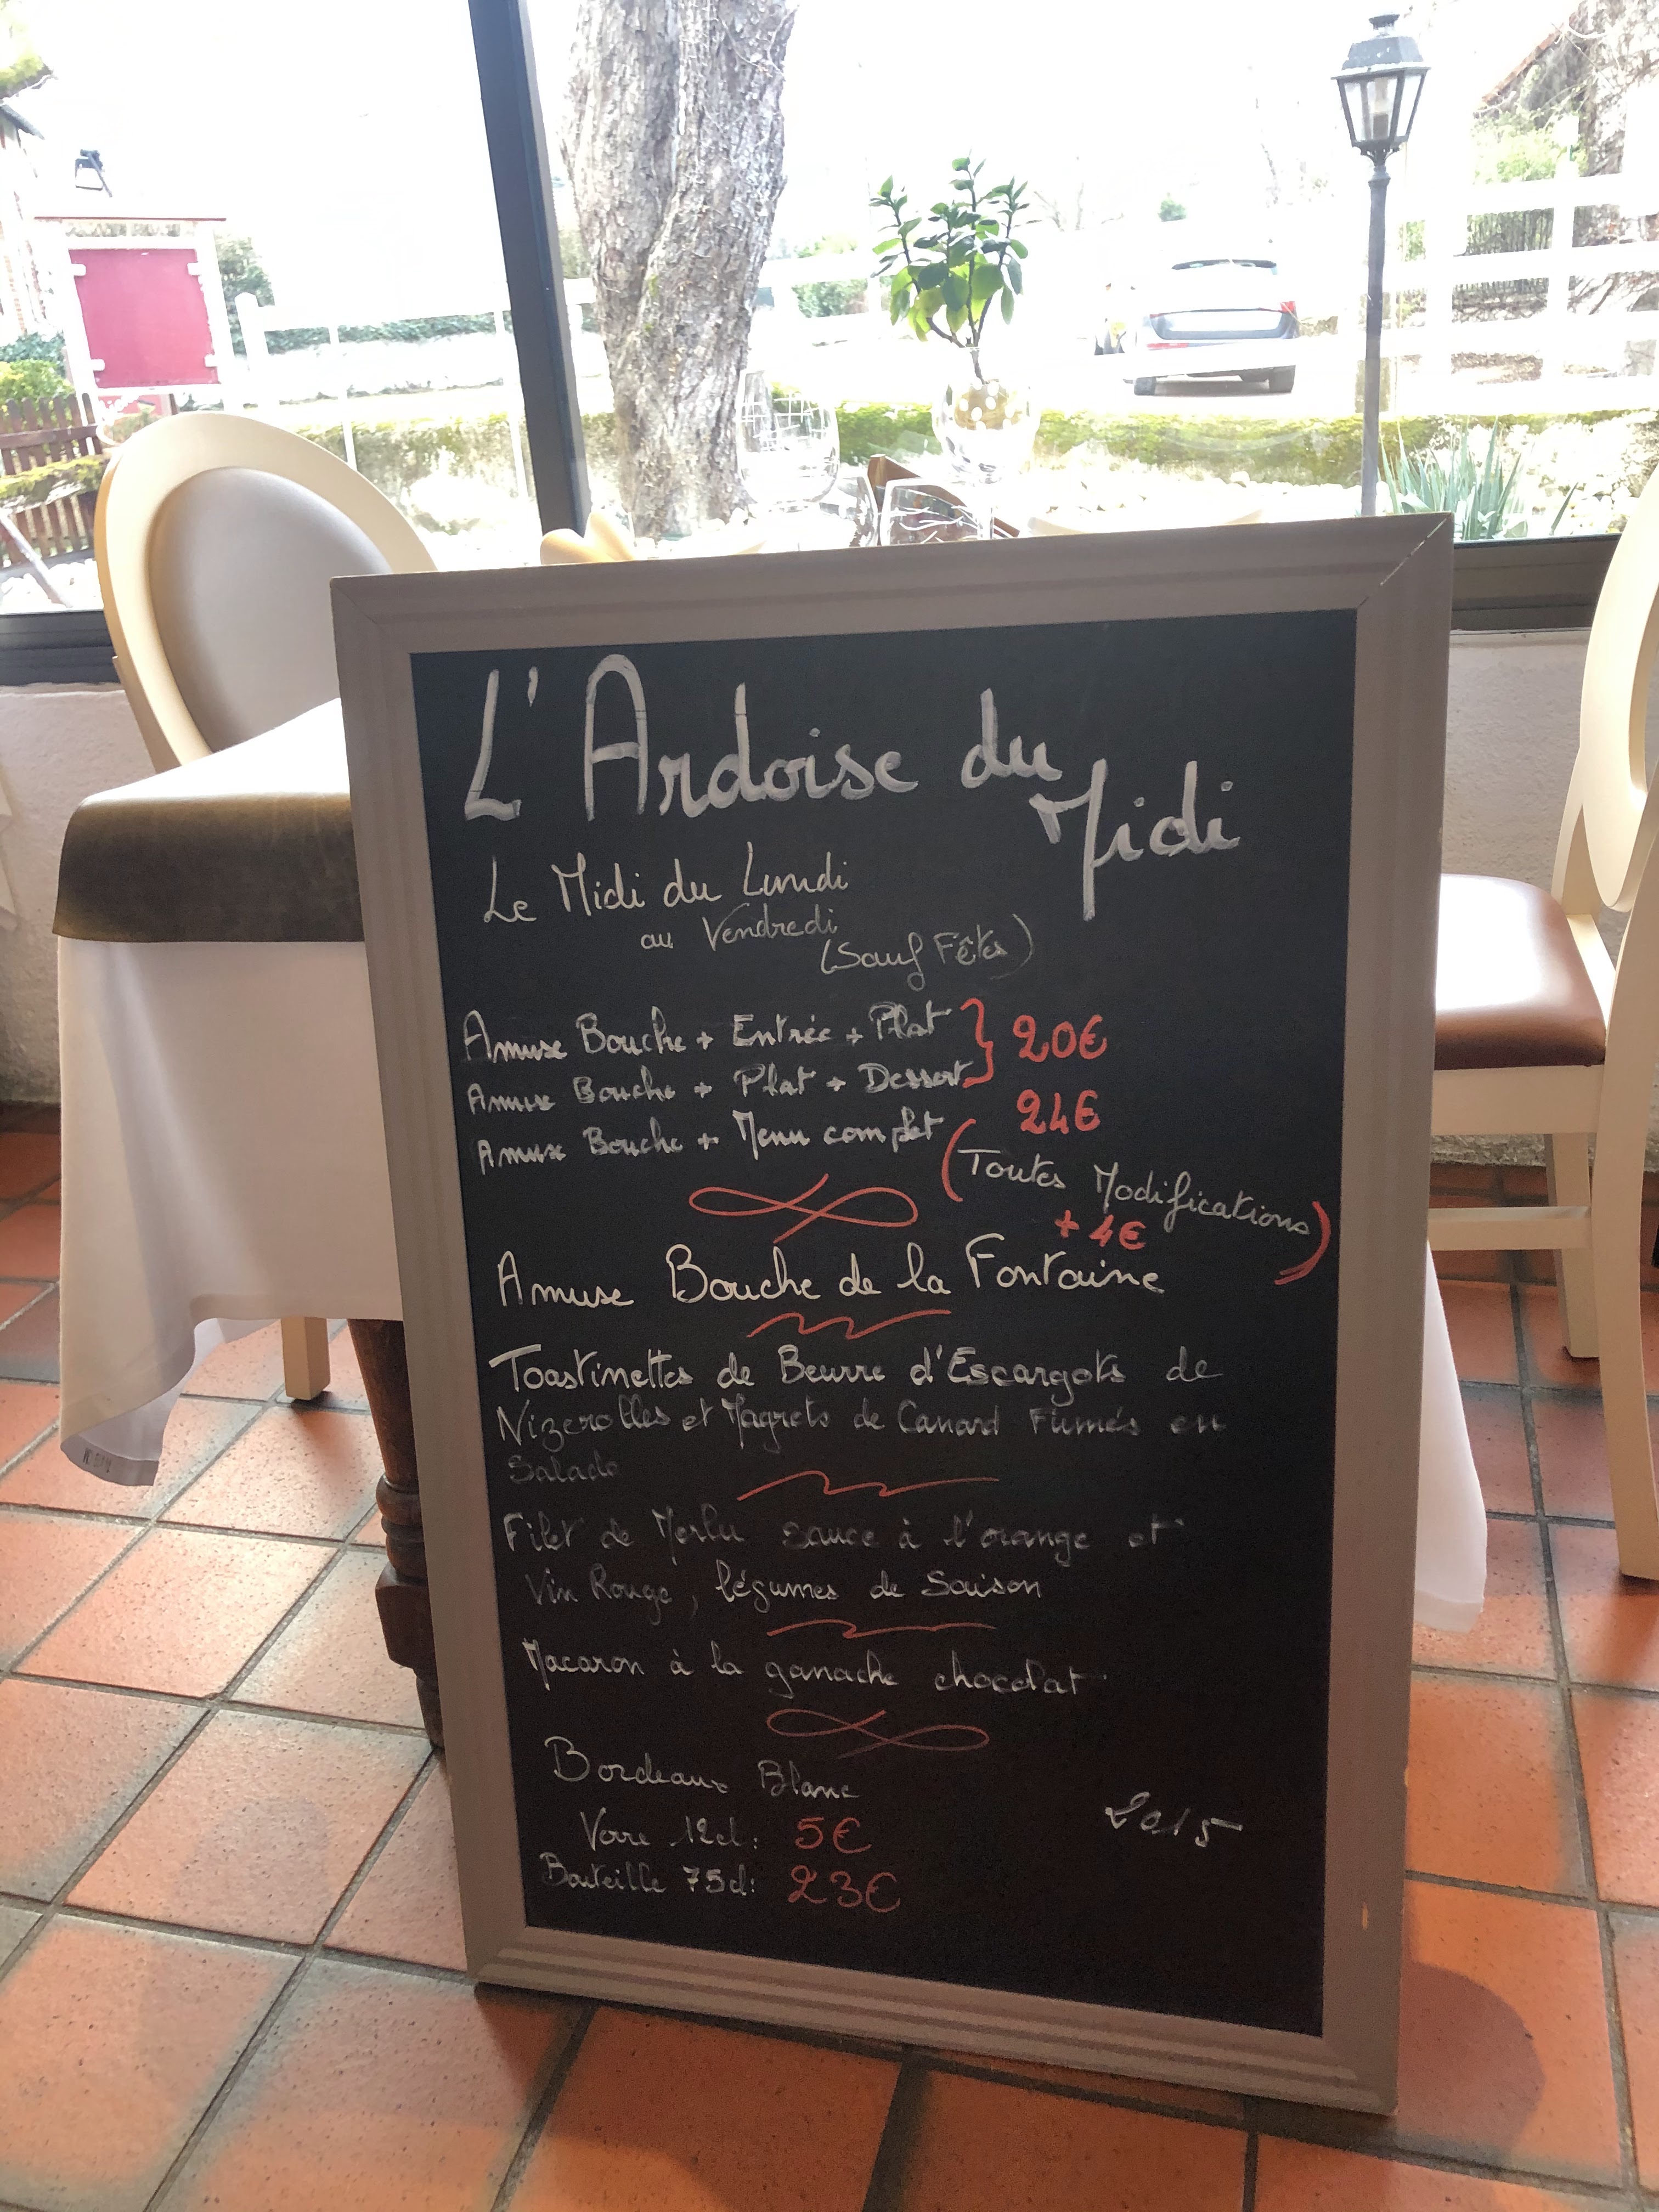 L'Ardoise du
Midi
Le Midi du Lundi
au Vendredi
(Sauf Fêtes)
Amuse Bouche + Entrée + Plat } 20€
Amuse Bouche + Plat + Dessert
Amuse Bouche + Menu complet 24€
(Toutes Modifications
+ 4€)
Amuse Bouche de la Fontaine
Toastinettes de Beurre d'Escargots de
Nizerolles et Magrets de Canard Fumés en
Salade
Filet de Merlu sauce à l'orange et
Vin Rouge, légumes de Saison
Macaron à la ganache chocolat
Bordeaux Blanc
2015
Verre 12cl: 5€
Bouteille 75cl: 23€